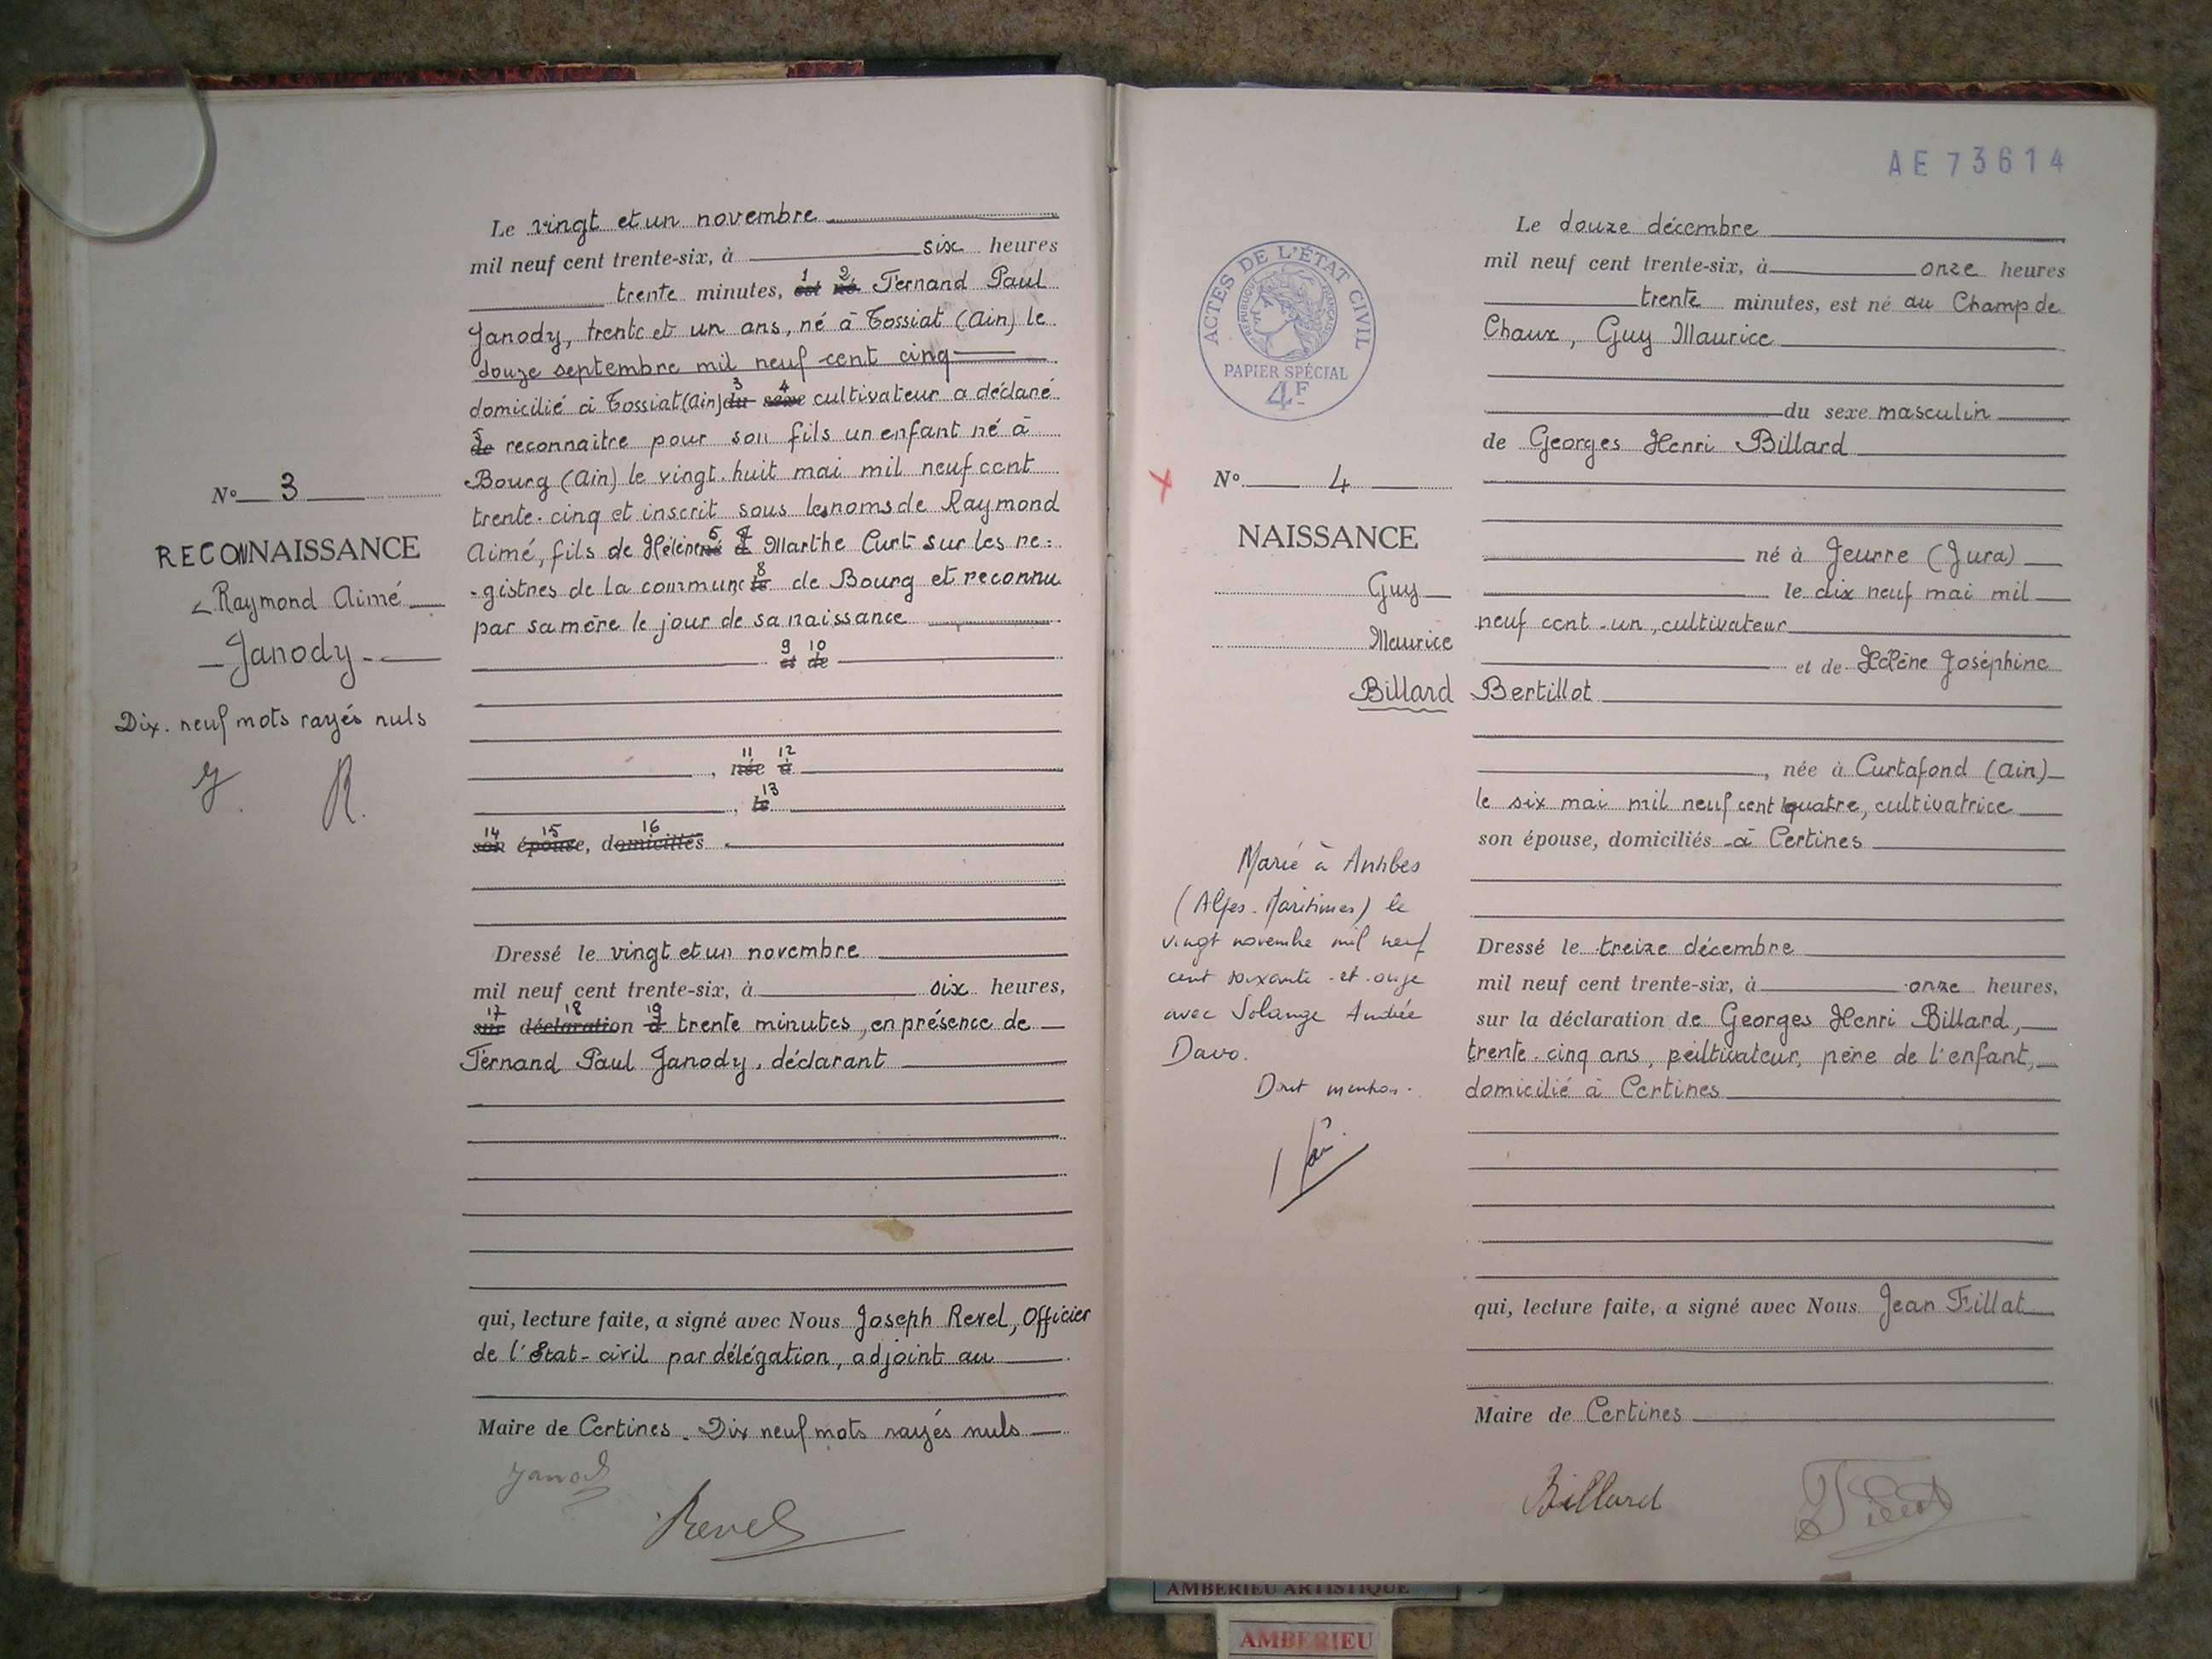 Le vingt et un novembre
mil neuf cent trente-six, à six heures
trente minutes, est né Fernand Paul
1 2
Janody, trente et un ans, né à Tossiat (Ain) le
douze septembre mil neuf cent cinq
3 4
domicilié à Tossiat (Ain) du sexe cultivateur a déclaré
5
de reconnaitre pour son fils un enfant né à
Bourg (Ain) le vingt-huit mai mil neuf cent
trente-cinq et inscrit sous les noms de Raymond
6 7
Aimé, fils de Hélène né à Marthe Curt sur les re=
8
-gistres de la commune le de Bourg et reconnu
par sa mère le jour de sa naissance
9 10
et de
11 12
, née à
13
, le
14 15 16
son épouse, domiciliés
Dressé le vingt et un novembre
mil neuf cent trente-six, à six heures,
17 18 19
sur déclaration d trente minutes, en présence de
Fernand Paul Janody, déclarant
qui, lecture faite, a signé avec Nous Joseph Revel, Officier
de l'Etat-civil par délégation, adjoint au
Maire de Certines. Dix neuf mots rayés nuls
Janody
Revel
No 3
RECONNAISSANCE
Raymond Aimé
Janody
Dix. neuf mots rayés nuls
J. R.
AE 73614
ACTES DE L'ÉTAT CIVIL
RÉPUBLIQUE FRANÇAISE
PAPIER SPÉCIAL
4F
No 4
NAISSANCE
Guy
Maurice
Billard
Marié à Antibes
(Alpes-Maritimes) le
vingt novembre mil neuf
cent soixante-et-onze
avec Solange Andrée
Davo.
Dont mention.
Le douze décembre
mil neuf cent trente-six, à onze heures
trente minutes, est né au Champ de
Chaux, Guy Maurice
du sexe masculin
de Georges Henri Billard
né à Jeurre (Jura)
le dix neuf mai mil
neuf cent-un, cultivateur
et de Hélène Joséphine
Bertillot
, née à Curtafond (Ain)
le six mai mil neuf cent quatre, cultivatrice
son épouse, domiciliés à Certines
Dressé le treize décembre
mil neuf cent trente-six, à onze heures,
sur la déclaration de Georges Henri Billard,
trente-cinq ans, cultivateur, père de l'enfant,
domicilié à Certines
qui, lecture faite, a signé avec Nous Jean Fillat
Maire de Certines
Billard
Fillat
AMBERIEU ARTISTIQUE
AMBERIEU